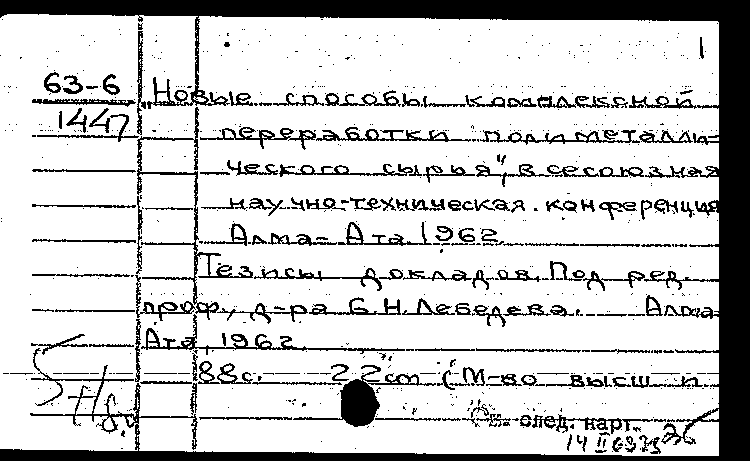 1
63-6
1447
"Новые способы комплексной
переработки полиметалли-
ческого сырья", всесоюзная
научно-техническая конференция
Алма-Ата. 1962.
Тезисы докладов. Под ред.
проф., д-ра Б.Н. Лебедева. Алма-
Ата, 1962.
88с. 22 см (М-во высш и
См. след. карт.
14 II 63